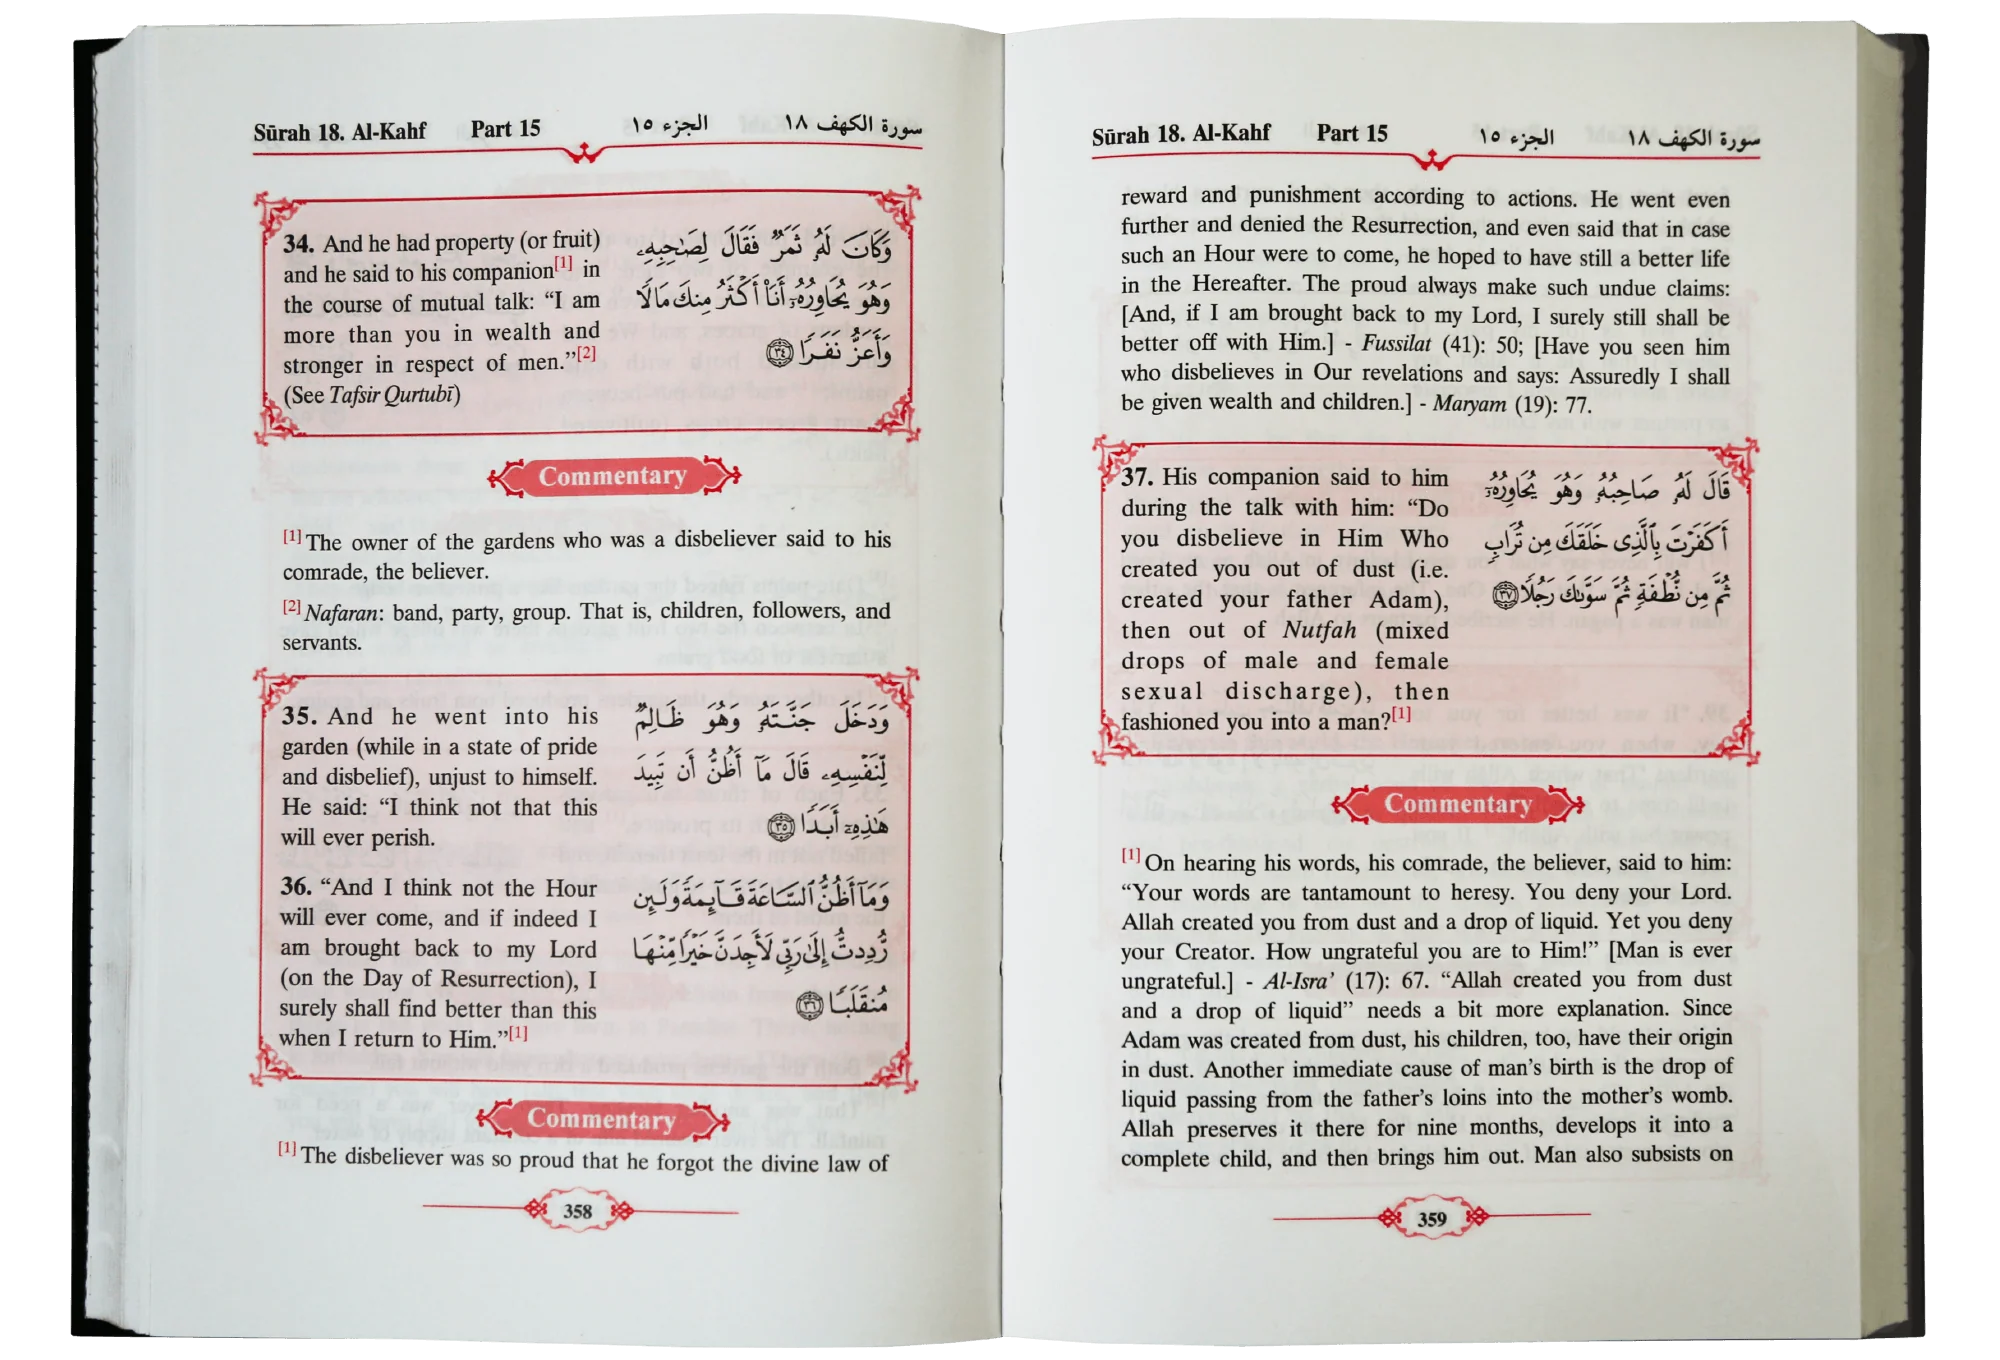 Sūrah 18. Al-Kahf Part 15 الجزء ١٥ سورة الكهف ١٨
34. And he had property (or fruit)
and he said to his companion[1] in
the course of mutual talk: “I am
more than you in wealth and
stronger in respect of men.”[2]
(See Tafsir Qurtubī)
وَكَانَ لَهُۥ ثَمَرٌ فَقَالَ لِصَٰحِبِهِۦ
وَهُوَ يُحَاوِرُهُۥٓ أَنَا۠ أَكْثَرُ مِنكَ مَالًا
وَأَعَزُّ نَفَرًا ٣٤
Commentary
[1] The owner of the gardens who was a disbeliever said to his
comrade, the believer.
[2] Nafaran: band, party, group. That is, children, followers, and
servants.
35. And he went into his
garden (while in a state of pride
and disbelief), unjust to himself.
He said: “I think not that this
will ever perish.
وَدَخَلَ جَنَّتَهُۥ وَهُوَ ظَالِمٌ
لِّنَفْسِهِۦ قَالَ مَآ أَظُنُّ أَن تَبِيدَ
هَٰذِهِۦٓ أَبَدًا ٣٥
36. “And I think not the Hour
will ever come, and if indeed I
am brought back to my Lord
(on the Day of Resurrection), I
surely shall find better than this
when I return to Him.”[1]
وَمَآ أَظُنُّ ٱلسَّاعَةَ قَآئِمَةً وَلَئِن
رُّدِدتُّ إِلَىٰ رَبِّى لَأَجِدَنَّ خَيْرًا مِّنْهَا
مُنقَلَبًا ٣٦
Commentary
[1] The disbeliever was so proud that he forgot the divine law of
358
Sūrah 18. Al-Kahf Part 15 الجزء ١٥ سورة الكهف ١٨
reward and punishment according to actions. He went even
further and denied the Resurrection, and even said that in case
such an Hour were to come, he hoped to have still a better life
in the Hereafter. The proud always make such undue claims:
[And, if I am brought back to my Lord, I surely still shall be
better off with Him.] - Fussilat (41): 50; [Have you seen him
who disbelieves in Our revelations and says: Assuredly I shall
be given wealth and children.] - Maryam (19): 77.
37. His companion said to him
during the talk with him: “Do
you disbelieve in Him Who
created you out of dust (i.e.
created your father Adam),
then out of Nutfah (mixed
drops of male and female
sexual discharge), then
fashioned you into a man?[1]
قَالَ لَهُۥ صَاحِبُهُۥ وَهُوَ يُحَاوِرُهُۥٓ
أَكَفَرْتَ بِٱلَّذِى خَلَقَكَ مِن تُرَابٍ
ثُمَّ مِن نُّطْفَةٍ ثُمَّ سَوَّىٰكَ رَجُلًا ٣٧
Commentary
[1] On hearing his words, his comrade, the believer, said to him:
“Your words are tantamount to heresy. You deny your Lord.
Allah created you from dust and a drop of liquid. Yet you deny
your Creator. How ungrateful you are to Him!” [Man is ever
ungrateful.] - Al-Isra’ (17): 67. “Allah created you from dust
and a drop of liquid” needs a bit more explanation. Since
Adam was created from dust, his children, too, have their origin
in dust. Another immediate cause of man’s birth is the drop of
liquid passing from the father’s loins into the mother’s womb.
Allah preserves it there for nine months, develops it into a
complete child, and then brings him out. Man also subsists on
359